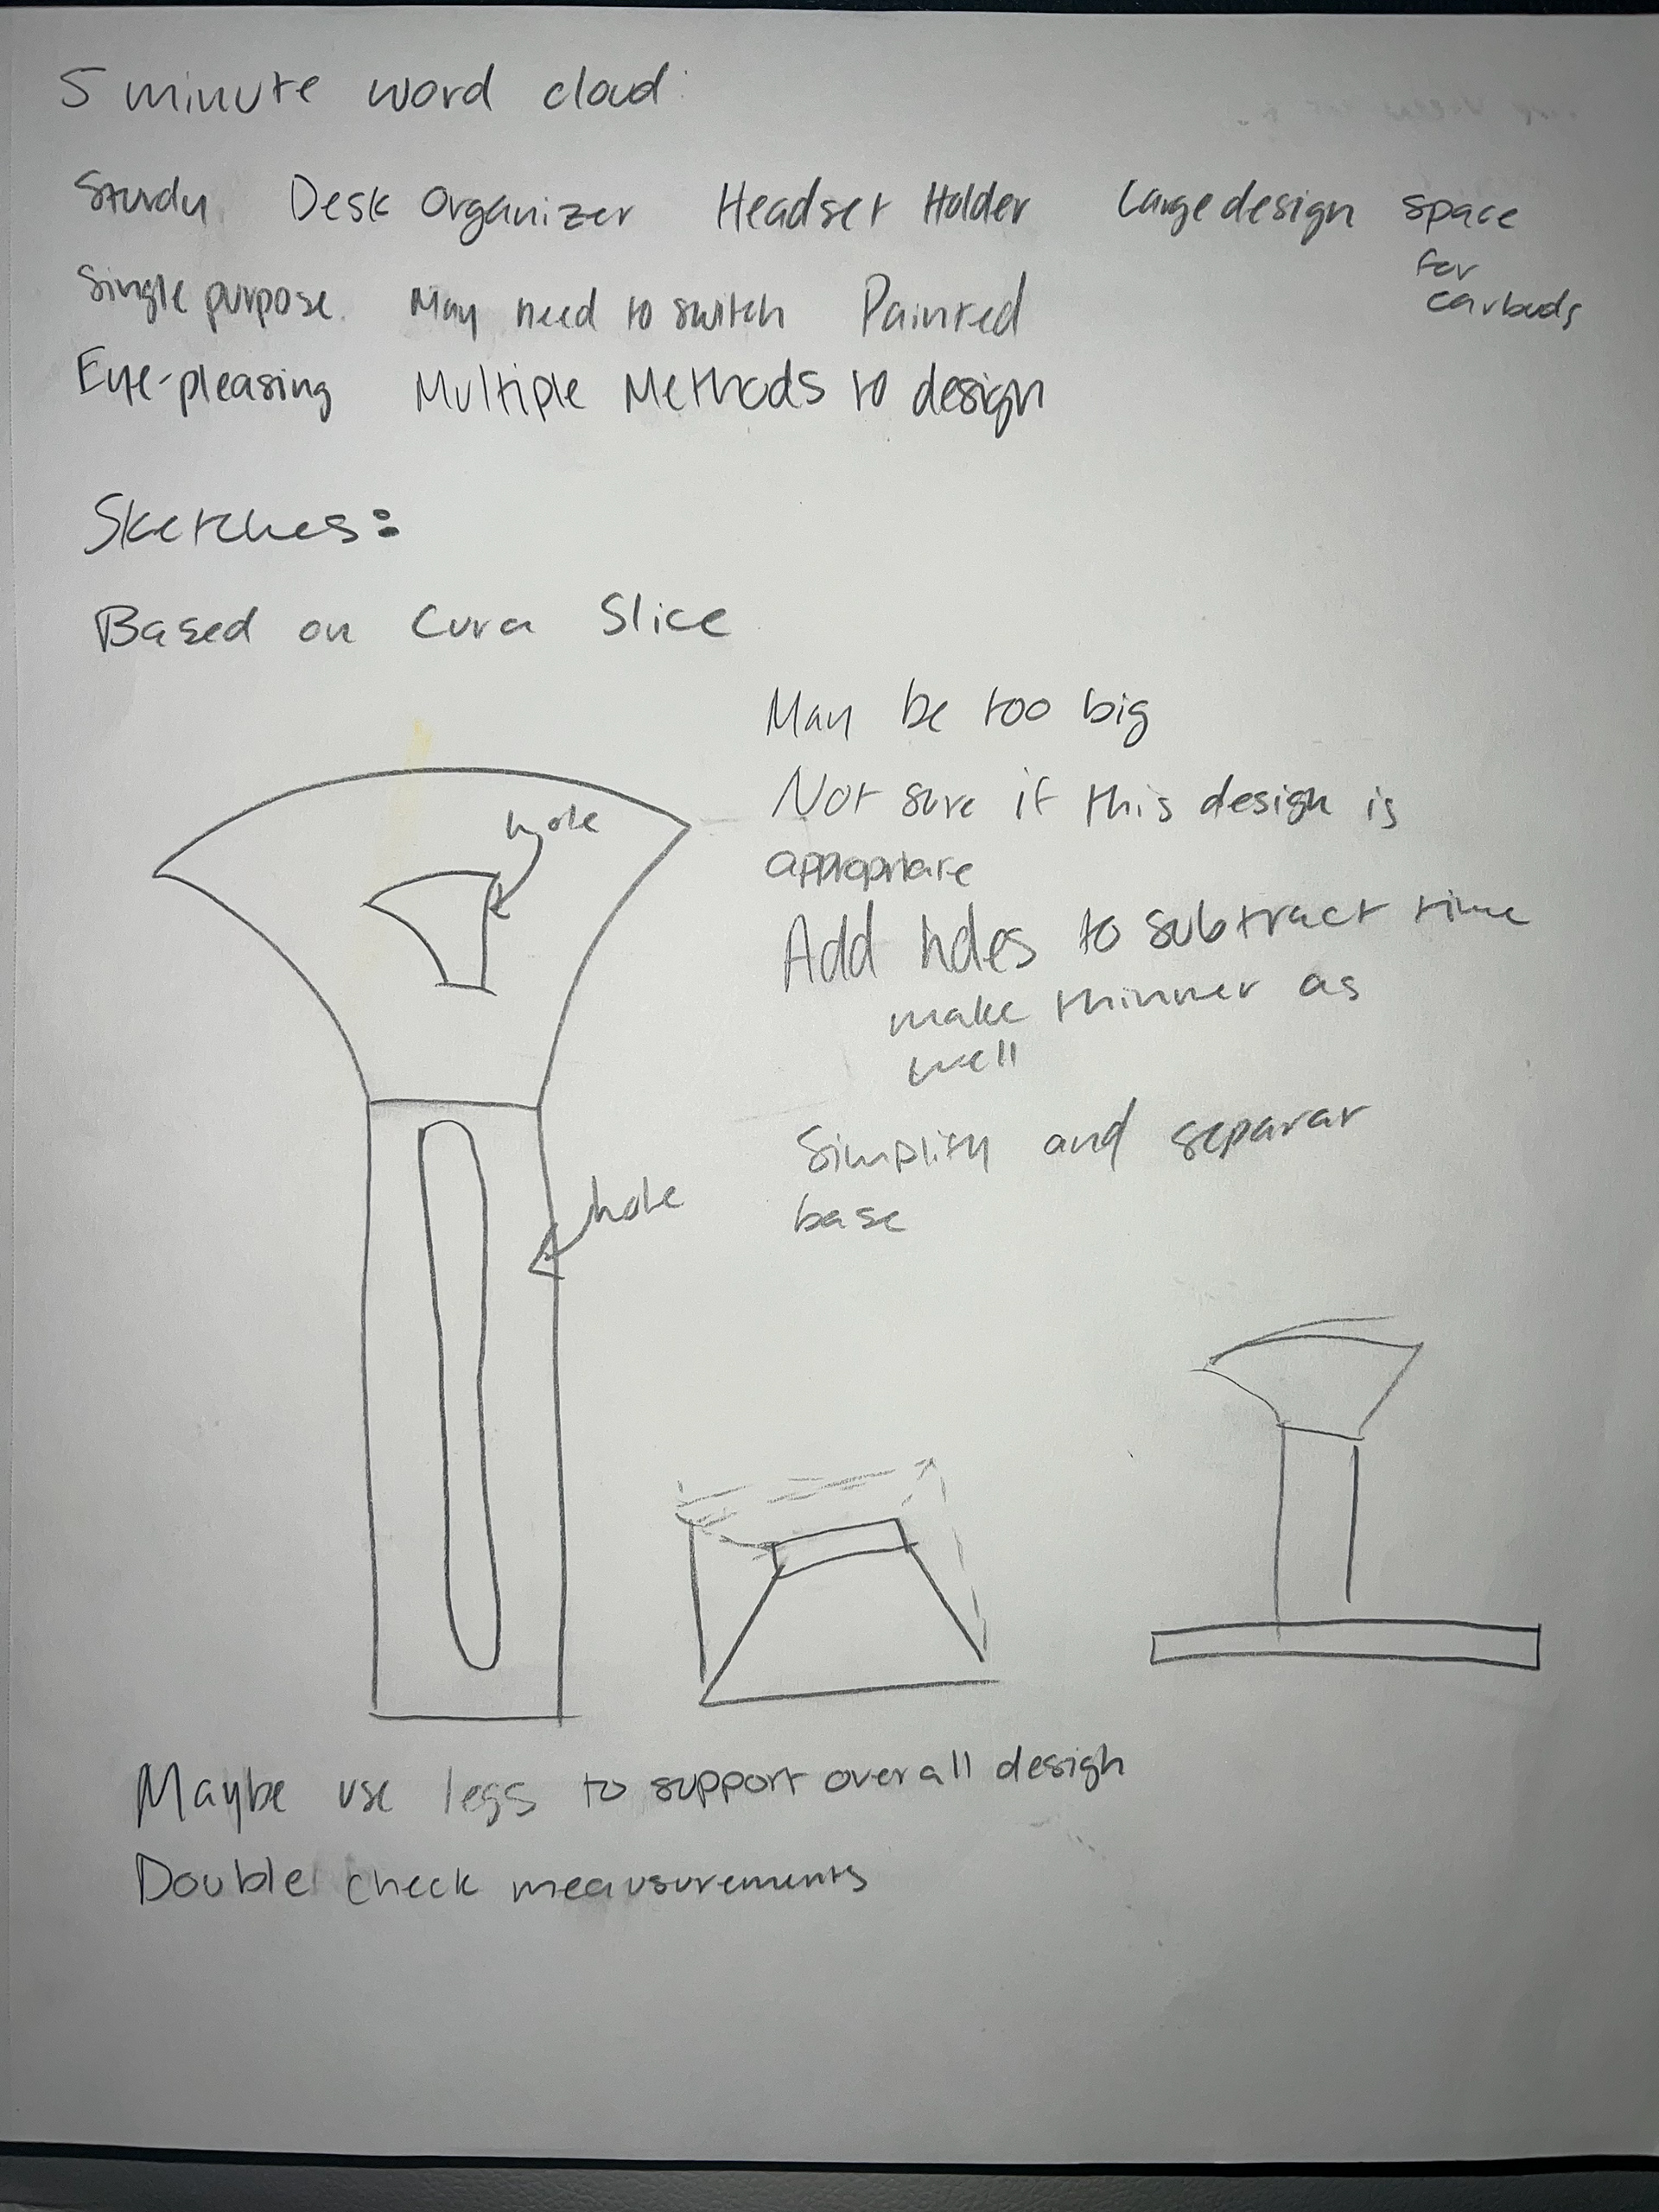 5 minute word cloud:
Sturdy Desk Organizer Headset Holder Large design space
for
earbuds
Single purpose. May need to switch Painted
Eye-pleasing Multiple Methods to design
Sketches:
Based on Cura Slice
May be too big
Not sure if this design is
appropriate
hole
Add holes to subtract time
make thinner as
well
Simplify and separat
base
hole
Maybe use legs to support overall design
Double check meausurements